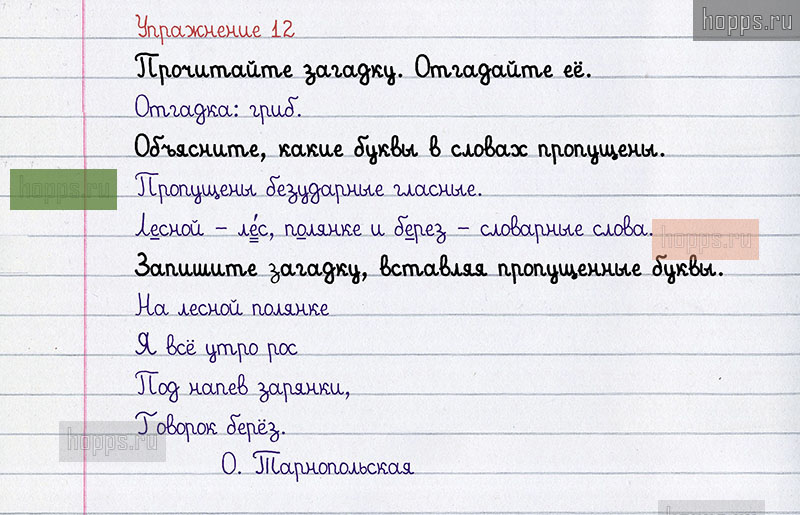 hopps.ru
Упражнение 12
Прочитайте загадку. Отгадайте её.
Отгадка: гриб.
Объясните, какие буквы в словах пропущены.
hopps.ru
Пропущены безударные гласные.
Лесной – ле́с, полянке и берез – словарные слова.
hopps.ru
Запишите загадку, вставляя пропущенные буквы.
На лесной полянке
Я всё утро рос
Под напев зарянки,
Говорок берёз.
hopps.ru
О. Тарнопольская
hopps.ru